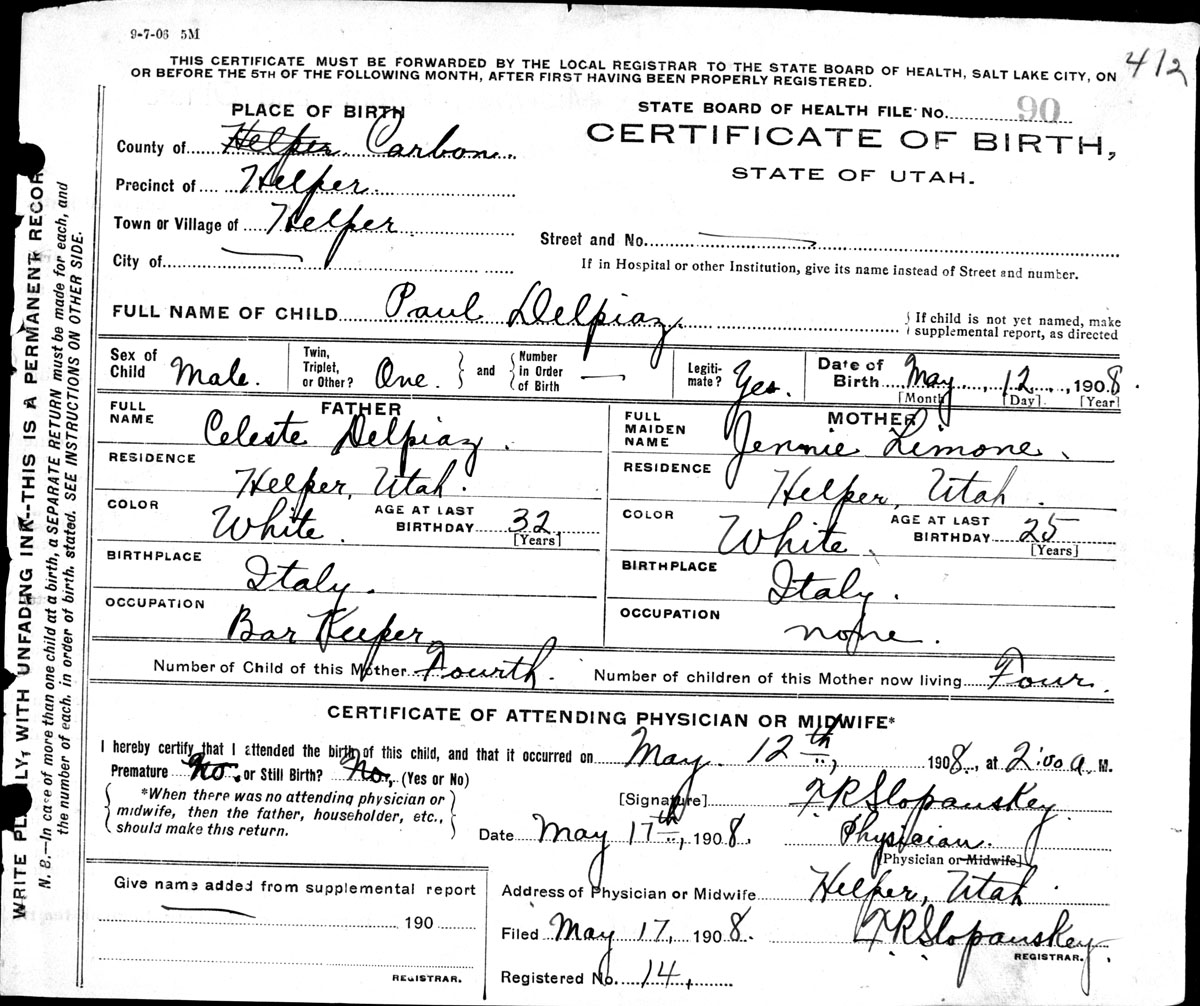 9-7-06 5M
THIS CERTIFICATE MUST BE FORWARDED BY THE LOCAL REGISTRAR TO THE STATE BOARD OF HEALTH, SALT LAKE CITY, ON
OR BEFORE THE 5TH OF THE FOLLOWING MONTH, AFTER FIRST HAVING BEEN PROPERLY REGISTERED.
412
PLACE OF BIRTH
County of Helper Carbon
Precinct of Helper
Town or Village of Helper
City of
STATE BOARD OF HEALTH FILE No. 90
CERTIFICATE OF BIRTH,
STATE OF UTAH.
Street and No.
If in Hospital or other Institution, give its name instead of Street and number.
FULL NAME OF CHILD Paul Delpiaz
If child is not yet named, make
supplemental report, as directed
Sex of Child Male.
Twin, Triplet, or Other? One. and Number in Order of Birth —
Legitimate? Yes.
Date of Birth May, 12, 1908.
[Month] [Day] [Year]
FATHER
FULL NAME Celeste Delpiaz.
RESIDENCE
Helper, Utah.
COLOR White. AGE AT LAST BIRTHDAY 32
[Years]
BIRTHPLACE
Italy.
OCCUPATION
Bar Keeper
MOTHER
FULL MAIDEN NAME Jennie Limone.
RESIDENCE
Helper, Utah.
COLOR White. AGE AT LAST BIRTHDAY 25
[Years]
BIRTHPLACE
Italy.
OCCUPATION
none.
Number of Child of this Mother Fourth. Number of children of this Mother now living Four.
CERTIFICATE OF ATTENDING PHYSICIAN OR MIDWIFE*
I hereby certify that I attended the birth of this child, and that it occurred on May 12th, 1908, at 2:00 a. M.
Premature No. or Still Birth? No, (Yes or No)
*When there was no attending physician or
midwife, then the father, householder, etc.,
should make this return.
[Signature] F R Slopanskey
Date May 17th, 1908. Physician.
[Physician or Midwife]
Address of Physician or Midwife Helper, Utah
Filed May 17, 1908. F R Slopanskey.
REGISTRAR.
Registered No. 14,
Give name added from supplemental report
190
REGISTRAR.
WRITE PLAINLY, WITH UNFADING INK--THIS IS A PERMANENT RECORD
N. B.—In case of more than one child at a birth, a SEPARATE RETURN must be made for each, and
the number of each, in order of birth, stated. SEE INSTRUCTIONS ON OTHER SIDE.